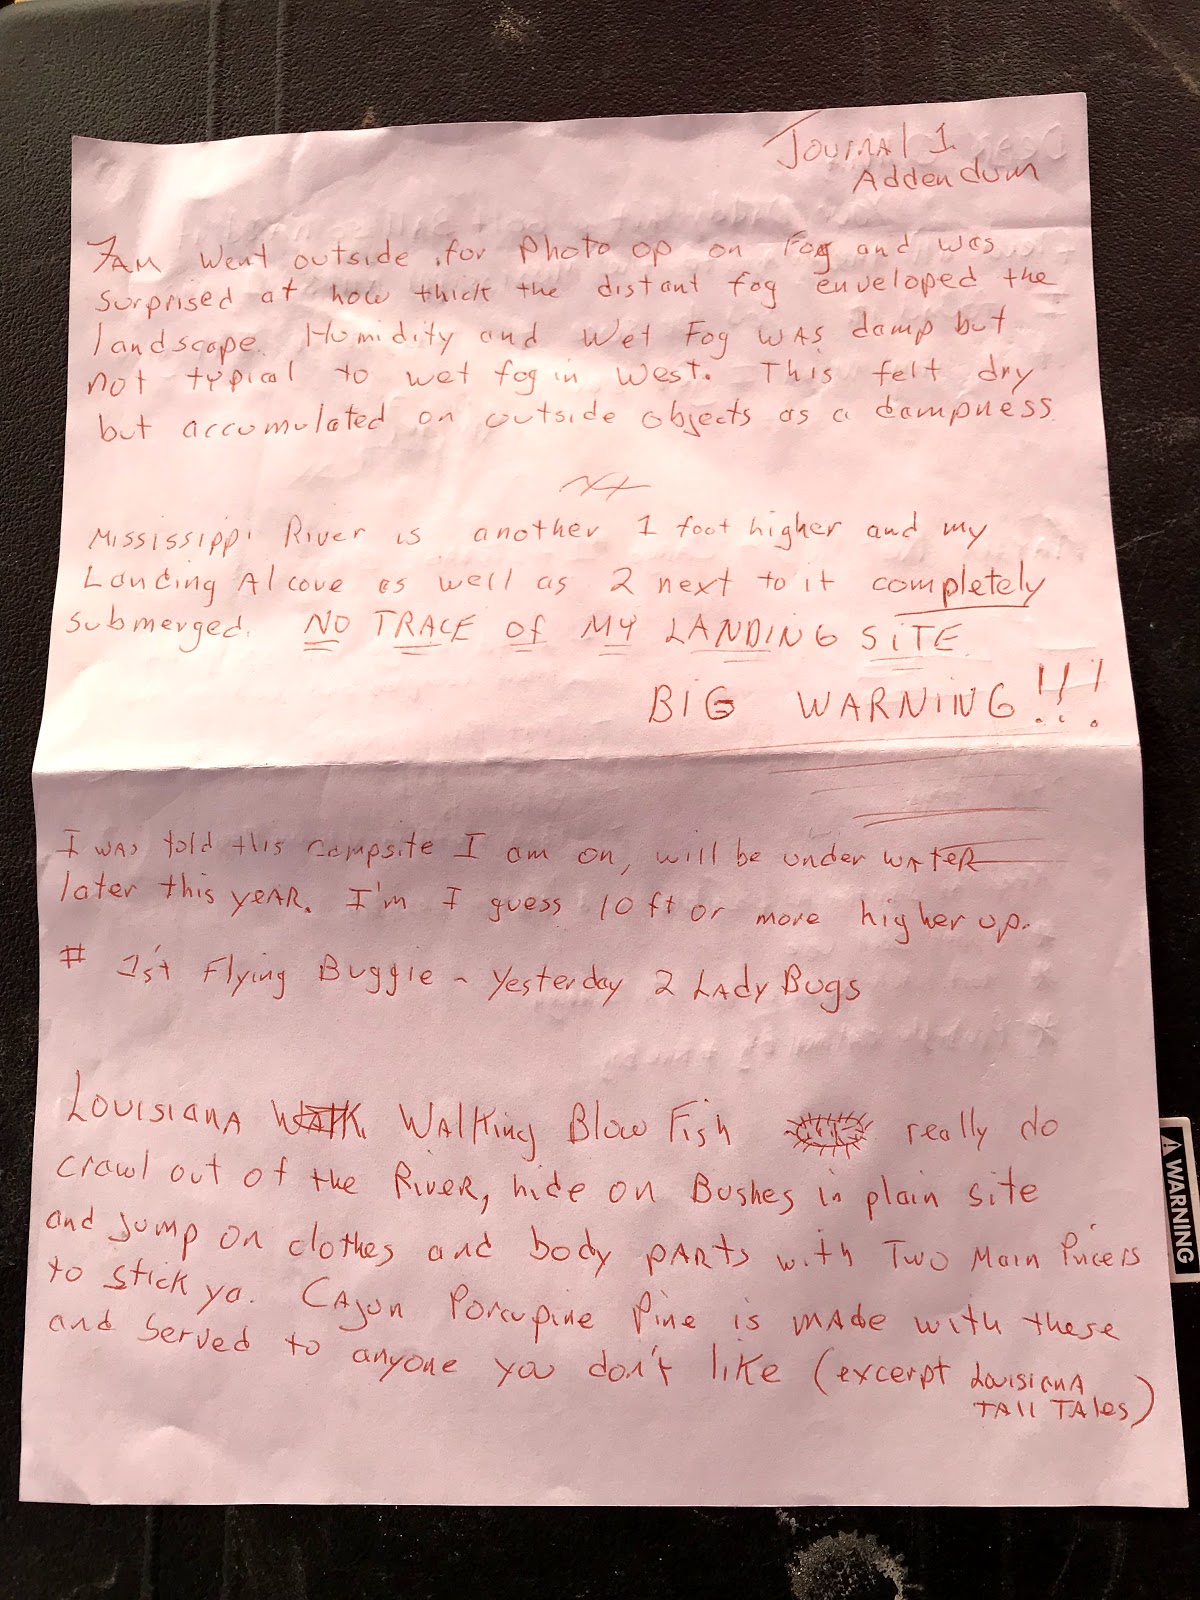 Journal 1
Addendum
7AM Went outside for Photo op on Fog and was
surprised at how thick the distant fog enveloped the
landscape. Humidity and Wet Fog WAS damp but
not typical to wet fog in West. This felt dry
but accumulated on outside objects as a dampness
Mississippi River is another 1 foot higher and my
Landing Alcove as well as 2 next to it completely
submerged. NO TRACE Of MY LANDING SiTE
BIG WARNING!!!
I was told this campsite I am on, will be under WATER
later this YEAR. I'm I guess 10 ft or more higher up.
# 1st Flying Buggie ~ Yesterday 2 LADY Bugs
LOUISIANA Walking Blow Fish really do
crawl out of the River, hide on Bushes in plain site
and Jump on clothes and body PARTS with Two Main Pricers
to stick ya. CAJUN Porcupine Pine is MADE with these
and Served to anyone you don't like (excerpt LouisiANA
TAll TAles)
WARNING